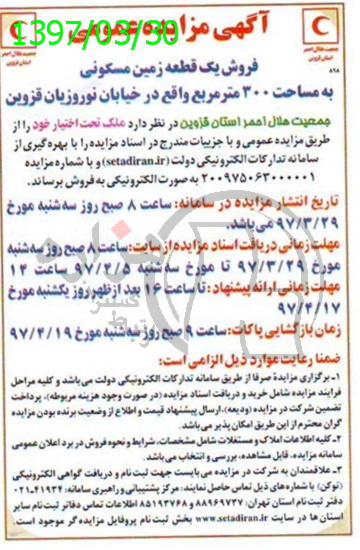 1397/03/30
آگهی مزایده عمومی
جمعیت هلال احمر
استان قزوین
جمعیت هلال احمر
استان قزوین
۸۹۸
فروش یک قطعه زمین مسکونی
به مساحت ۳۰۰ مترمربع واقع در خیابان نوروزیان قزوین
جمعیت هلال احمر استان قزوین در نظر دارد ملک تحت اختیار خود را از
طریق مزایده عمومی و با جزییات مندرج در اسناد مزایده را با بهره‌گیری از
سامانه تدارکات الکترونیکی دولت (setadiran.ir) و با شماره مزایده
۲۰۰۹۷۵۰۶۳۰۰۰۰۰۱ به صورت الکترونیکی به فروش برساند.
تاریخ انتشار مزایده در سامانه: ساعت ۸ صبح روز سه‌شنبه مورخ
۹۷/۳/۲۹ می‌باشد.
مهلت زمانی دریافت اسناد مزایده از سایت: ساعت ۸ صبح روز سه‌شنبه
مورخ ۹۷/۳/۲۹ تا مورخ سه‌شنبه ۹۷/۴/۵ ساعت ۱۴
مهلت زمانی ارائه پیشنهاد: تا ساعت ۱۶ بعد از ظهر روز یکشنبه مورخ
۹۷/۴/۱۷
زمان بازگشایی پاکات: ساعت ۹ صبح روز سه‌شنبه مورخ ۹۷/۴/۱۹
ضمنا رعایت موارد ذیل الزامی است:
۱- برگزاری مزایده صرفا از طریق سامانه تدارکات الکترونیکی دولت می‌باشد و کلیه مراحل
فرایند مزایده شامل خرید و دریافت اسناد مزایده (در صورت وجود هزینه مربوطه)، پرداخت
تضمین شرکت در مزایده (ودیعه)، ارسال پیشنهاد قیمت و اطلاع از وضعیت برنده بودن مزایده
گران محترم از این طریق امکان پذیر می‌باشد.
۲- کلیه اطلاعات املاک و مستغلات شامل مشخصات، شرایط و نحوه فروش در برد اعلان عمومی
سامانه مزایده، قابل مشاهده، بررسی و انتخاب می‌باشد.
۳- علاقمندان به شرکت در مزایده می‌بایست جهت ثبت نام و دریافت گواهی الکترونیکی
(توکن) با شماره‌های ذیل تماس حاصل نمایند: مرکز پشتیبانی و راهبری سامانه: ۴۱۹۳۴-۰۲۱
دفتر ثبت نام استان تهران: ۸۸۹۶۹۷۳۷ و ۸۵۱۹۳۷۶۸ اطلاعات تماس دفاتر ثبت نام سایر
استان ها در سایت www.setadiran.ir بخش ثبت نام پروفایل مزایده گر موجود است.